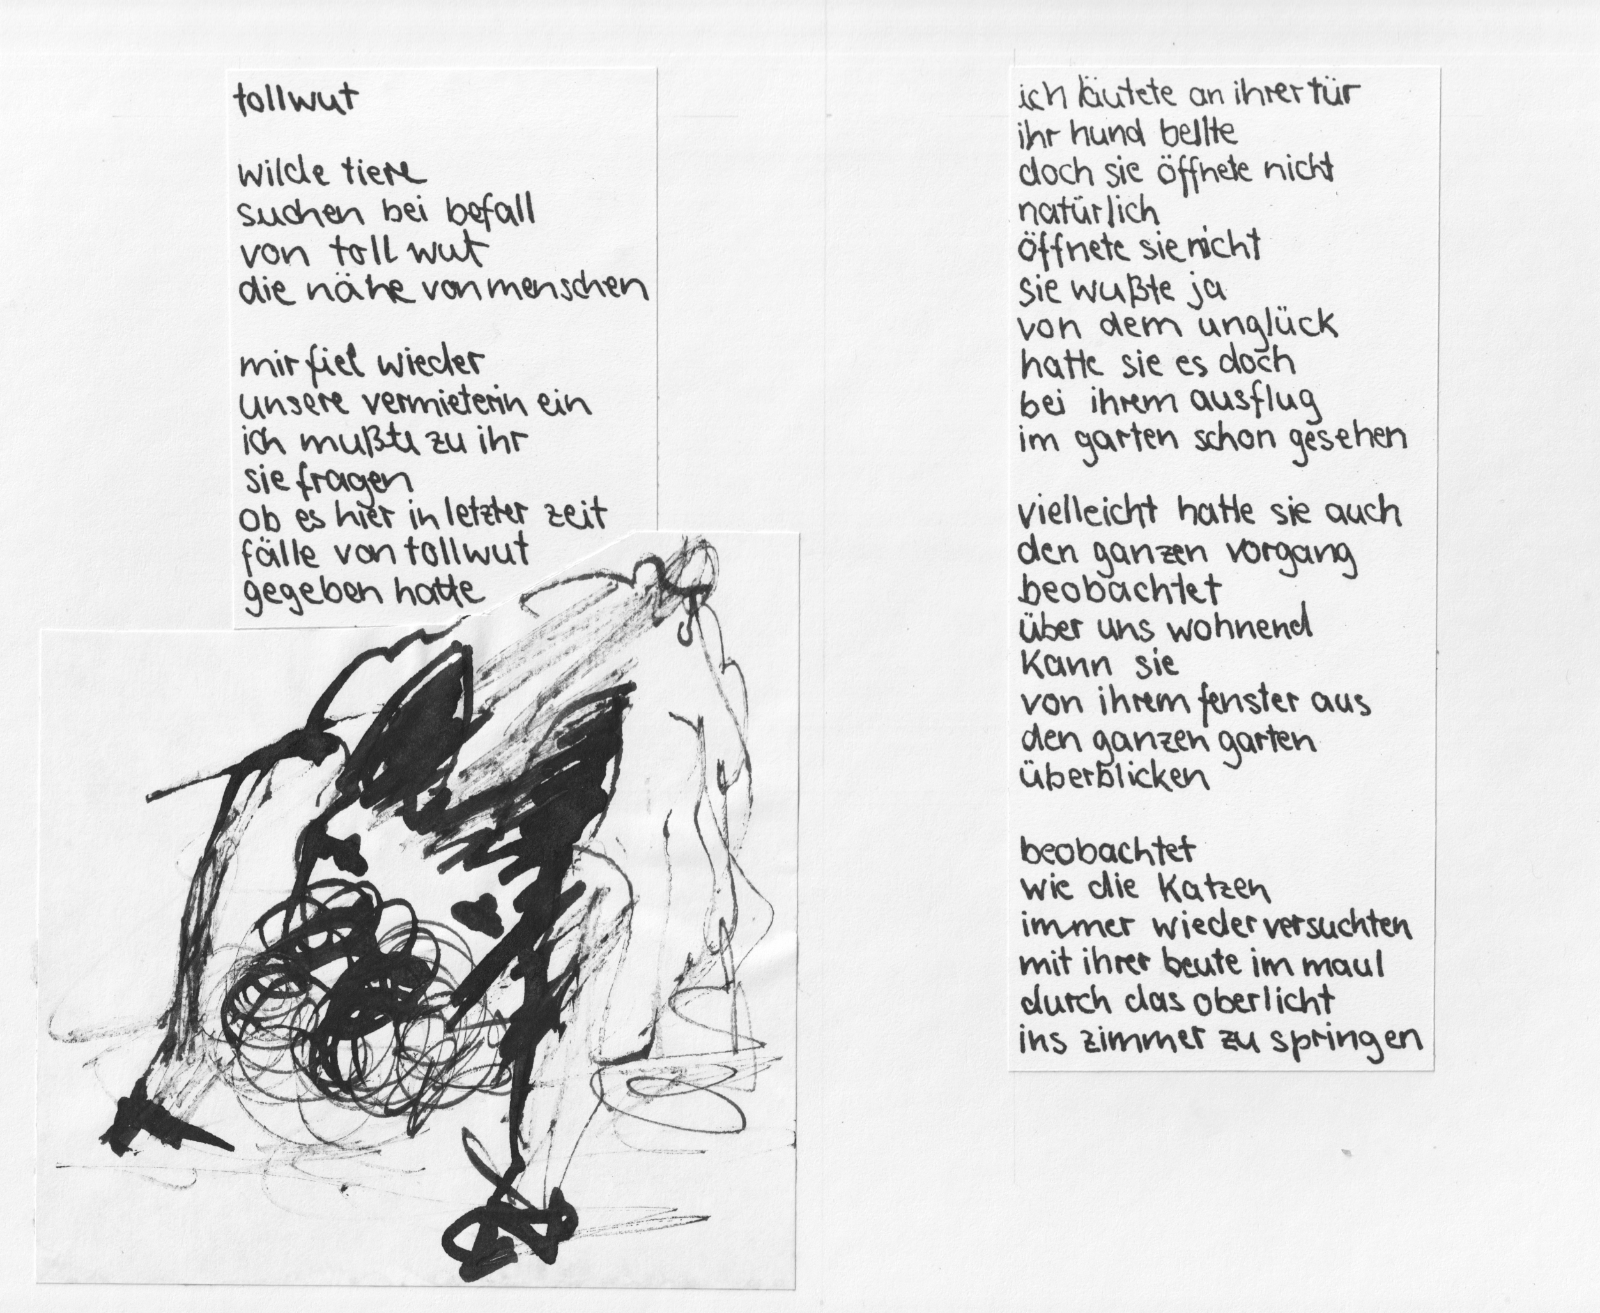 tollwut

wilde tiere
suchen bei befall
von tollwut
die nähe von menschen

mir fiel wieder
unsere vermieterin ein
ich mußte zu ihr
sie fragen
ob es hier in letzter zeit
fälle von tollwut
gegeben hatte

ich läutete an ihrer tür
ihr hund bellte
doch sie öffnete nicht
natürlich
öffnete sie nicht
sie wußte ja
von dem unglück
hatte sie es doch
bei ihrem ausflug
im garten schon gesehen

vielleicht hatte sie auch
den ganzen vorgang
beobachtet
über uns wohnend
kann sie
von ihrem fenster aus
den ganzen garten
überblicken

beobachtet
wie die katzen
immer wieder versuchten
mit ihrer beute im maul
durch das oberlicht
ins zimmer zu springen